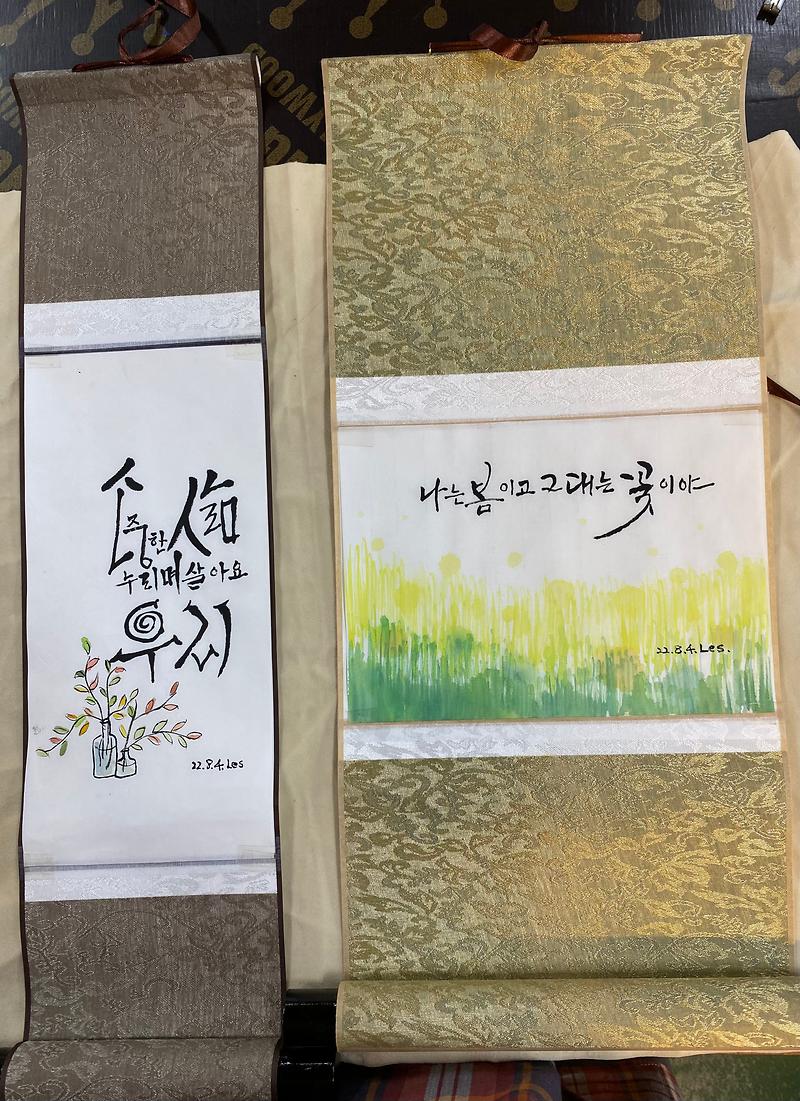 소중한 삶
누리며 살아요
우리
22.8.4. Les
나는 봄이고 그대는 꽃이야
22.8.4. Les.